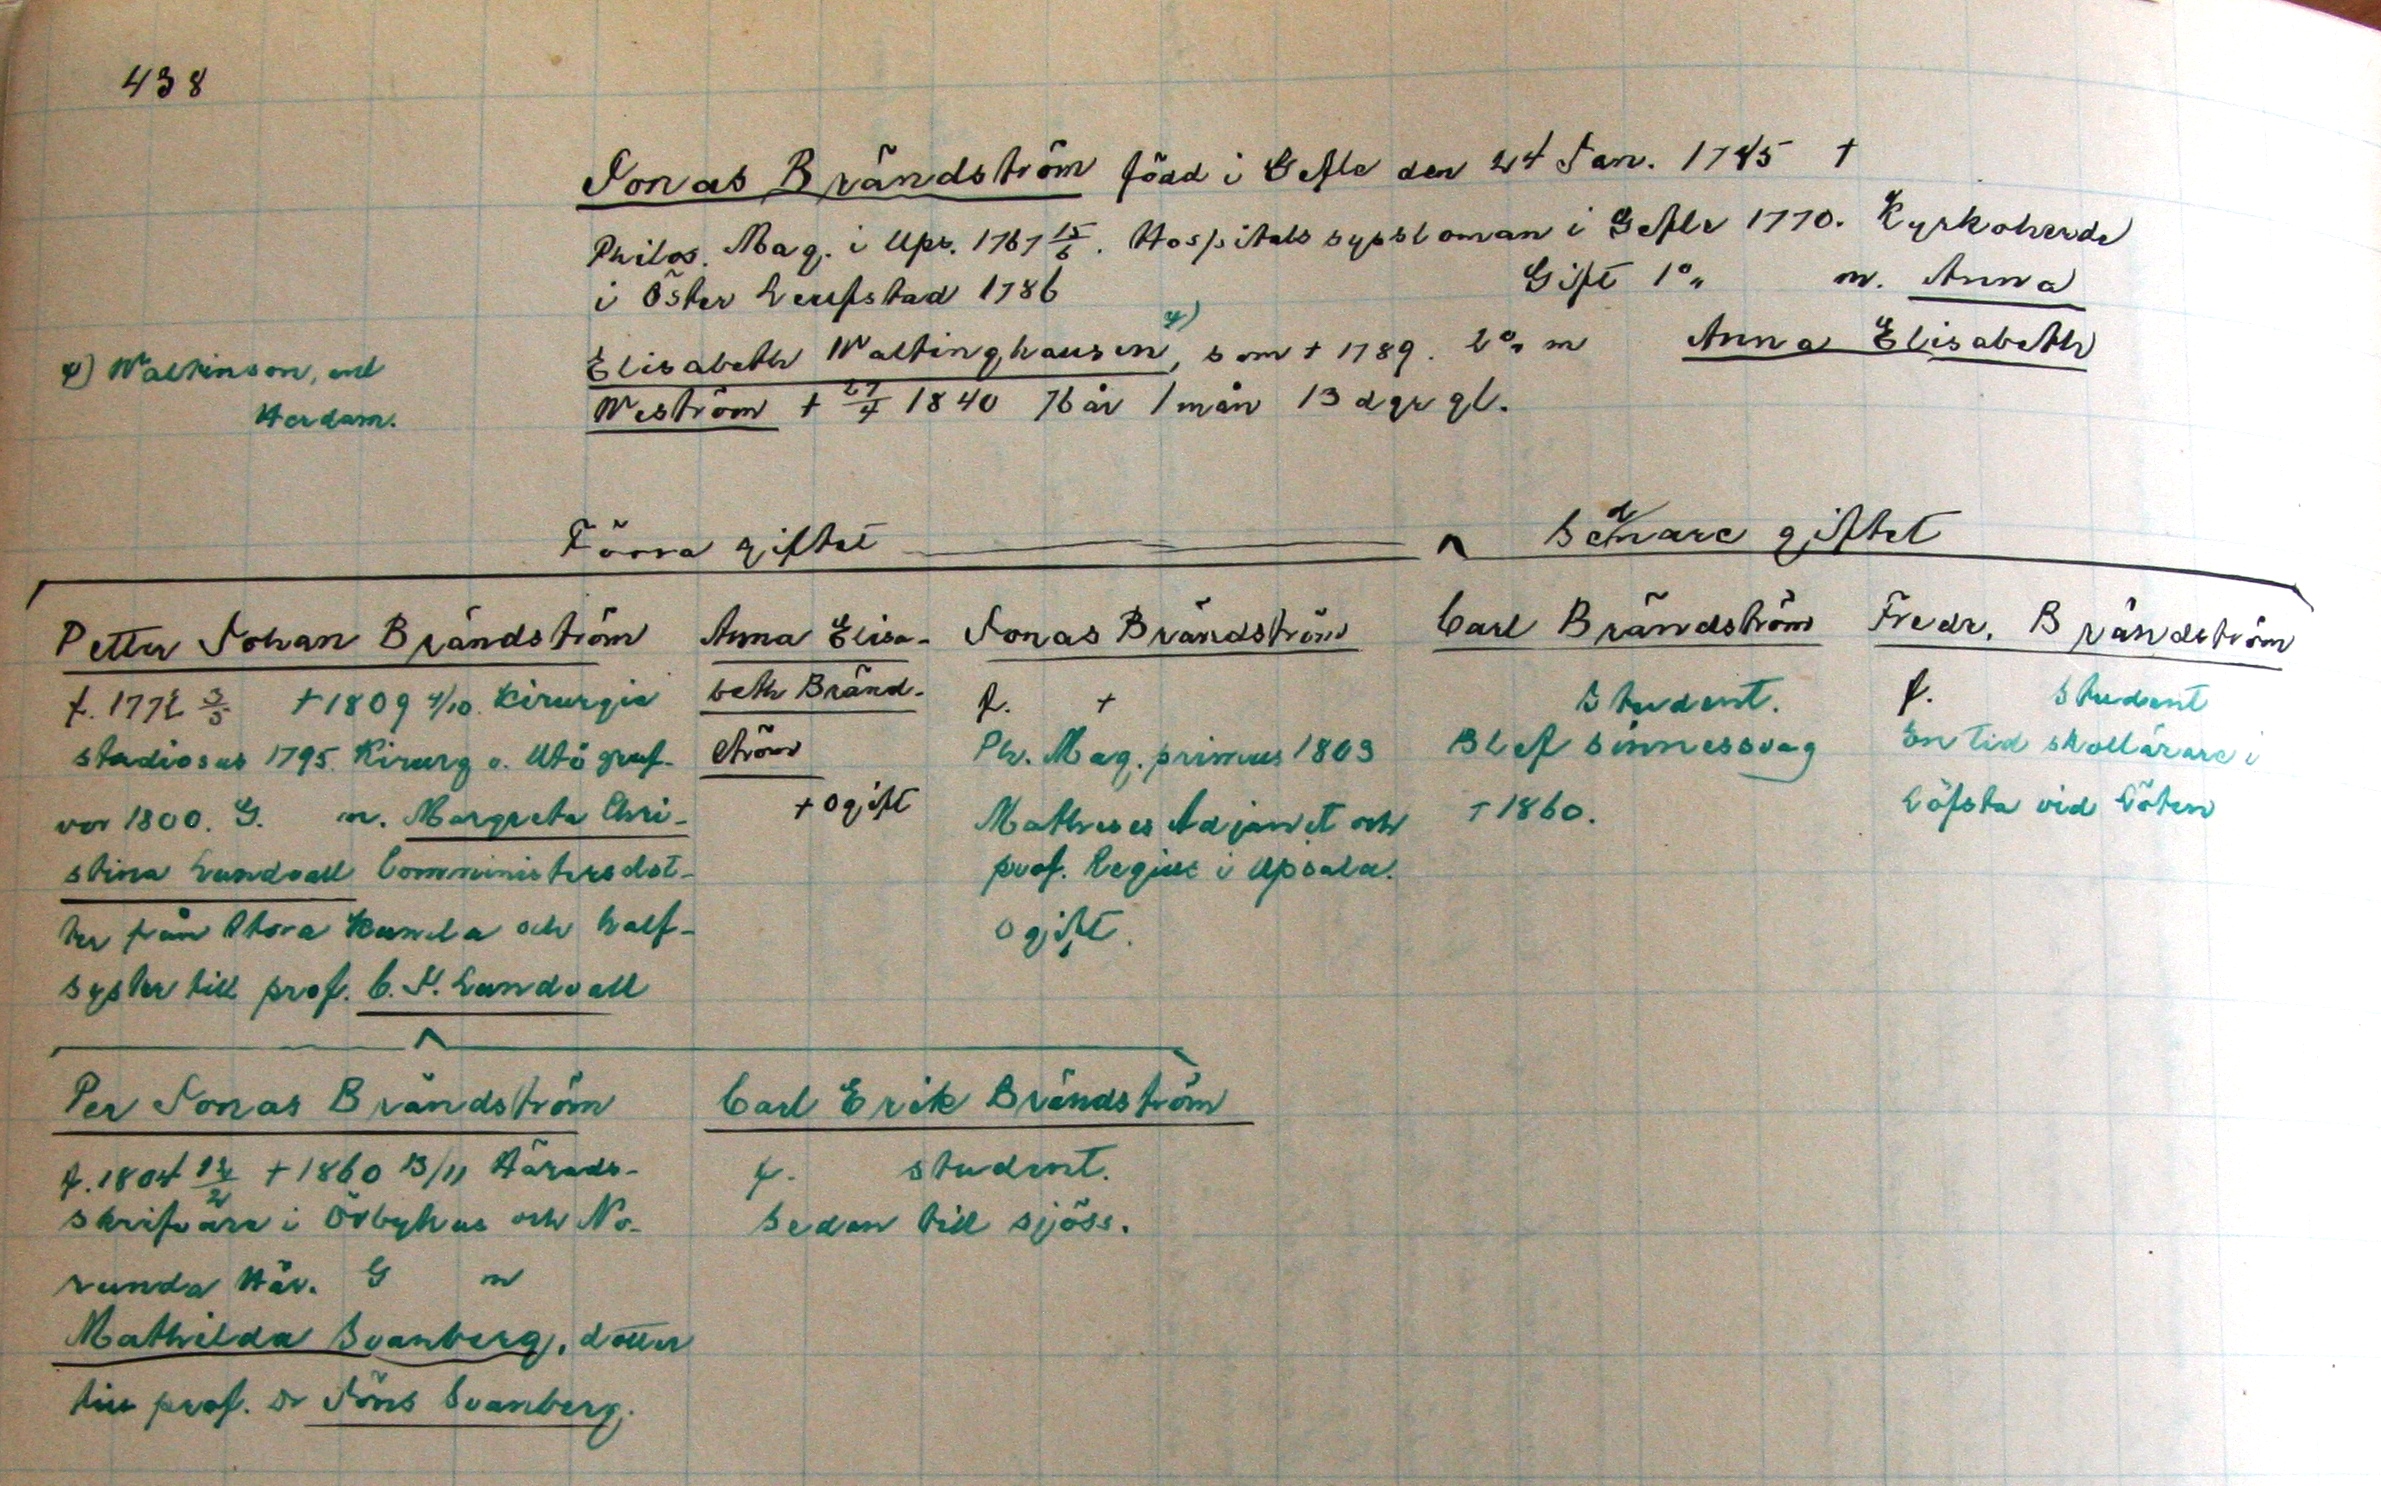 438
Jonas Brändström född i Gefle den 24 Jan. 1745 †
Philos. Mag. i Ups. 1767 15/6. Hospitals syssloman i Gefle 1770. Kyrkoherde
i Öster Leufstad 1786 Gift 1° m. Anna
Elisabeth Waltinghausen #), som † 1789. 2° m Anna Elisabeth
Weström † 27/4 1840 76 år 1 mån 13 dgr gl.
#) Walkinson, enl
Herdam.
Förra giftet
Senare giftet
Petter Johan Brändström
f. 1772 3/5 † 1809 4/10. Kirurgie
studiosus 1795. Kirurg v. Utö gruf-
vor 1800. G. m. Margreta Chri-
stina Lundvall Comministersdot-
ter från Stora Kumla och half-
syster till prof. C. J. Lundvall
Anna Elisa-
beth Bränd-
ström
† ogift
Jonas Brändström
f. †
Ph. Mag. primus 1803
Matheses Adjunct och
prof. Regius i Upsala.
ogift.
Carl Brändström
Student.
Blef sinnessvag
† 1860.
Fredr. Brändström
f. student
En tid skollärare i
Löfsta vid Löten
Per Jonas Brändström
f. 1804 12/2 † 1860 13/11 Härads-
skrifvare i Örbyhus och No-
runda Här. G m
Mathilda Svanberg, dotter
till prof. Dr Jöns Svanberg.
Carl Erik Brändström
f. student.
Sedan till sjöss.